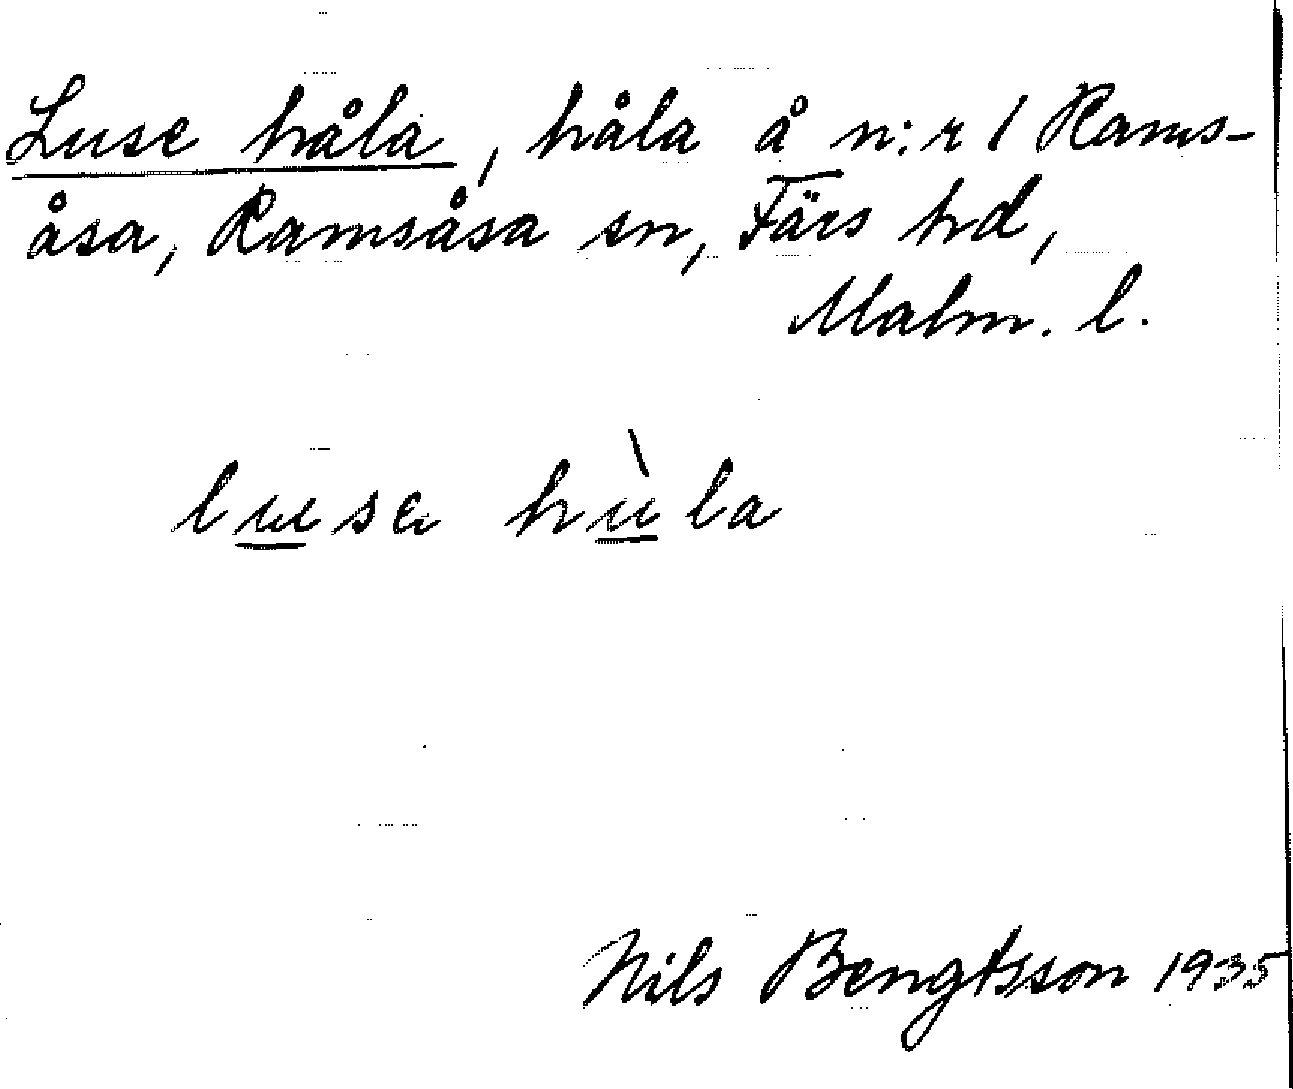 Luse håla, håla å n:r 1 Rams-
åsa, Ramsåsa sn, Färs hd,
Malm. l.
luse hùla
Nils Bengtsson 1935